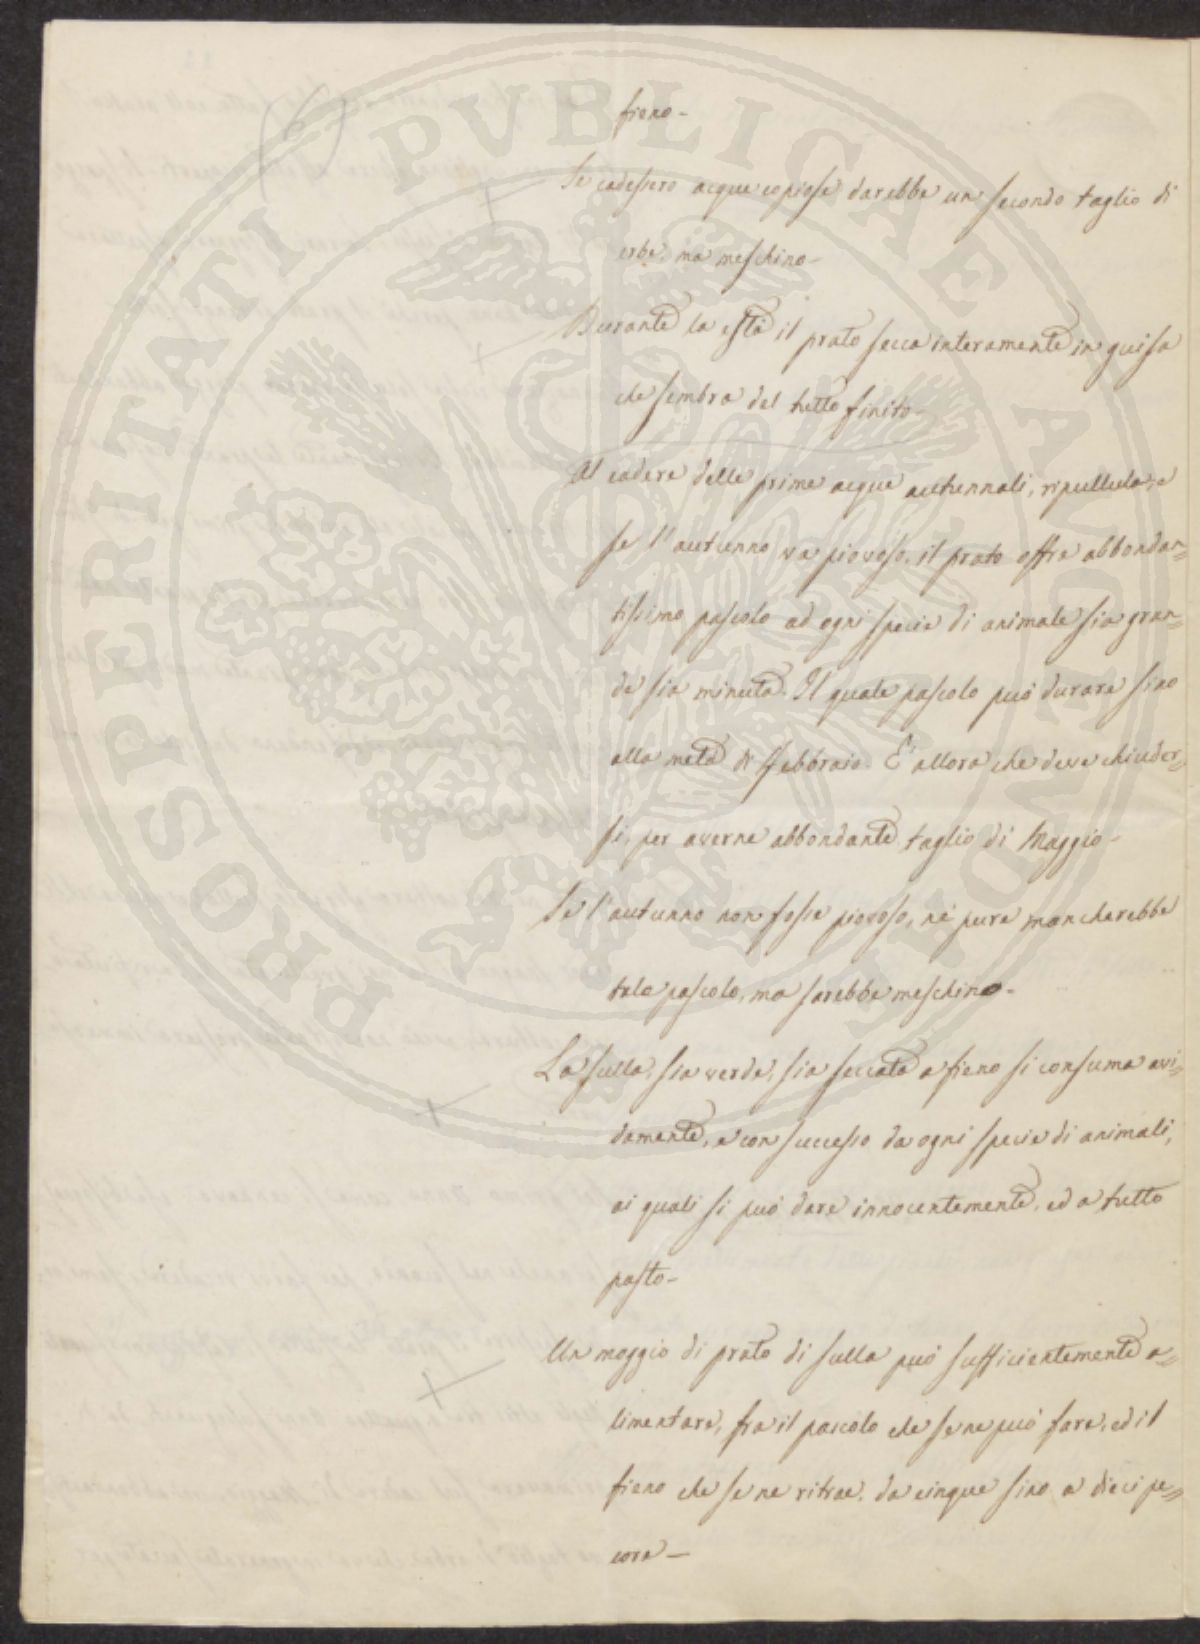 6
fieno-
Se cadessero acque copiose darebbe un secondo taglio di
erbe, ma meschino-
Durante la està il prato secca interamente in guisa
che sembra del tutto finito-
Al cadere delle prime acque autunnali, ripullula, e
se l'autunno va piovoso, il prato offre abbondan=
tissimo pascolo ad ogni specie di animale sia gran=
de sia minuta. Il quale pascolo può durare sino
alla metà di febbraio. E' allora che deve chiuder=
si, per averne abbondante taglio di Maggio-
Se l'autunno non fosse piovoso, nè pure mancherebbe
tale pascolo, ma sarebbe meschino-
La sulla, sia verde, sia seccata a fieno si consuma avi=
damente, e con successo da ogni specie di animali,
ai quali si può dare innocentemente, ed a tutto
pasto-
Un moggio di prato di sulla può sufficientemente a=
limentare, fra il pascolo che se ne può fare, ed il
fieno che se ne ritrae, da cinque sino a dieci pe=
core-
PROSPERITATI PVBLICAE AVGENDAE